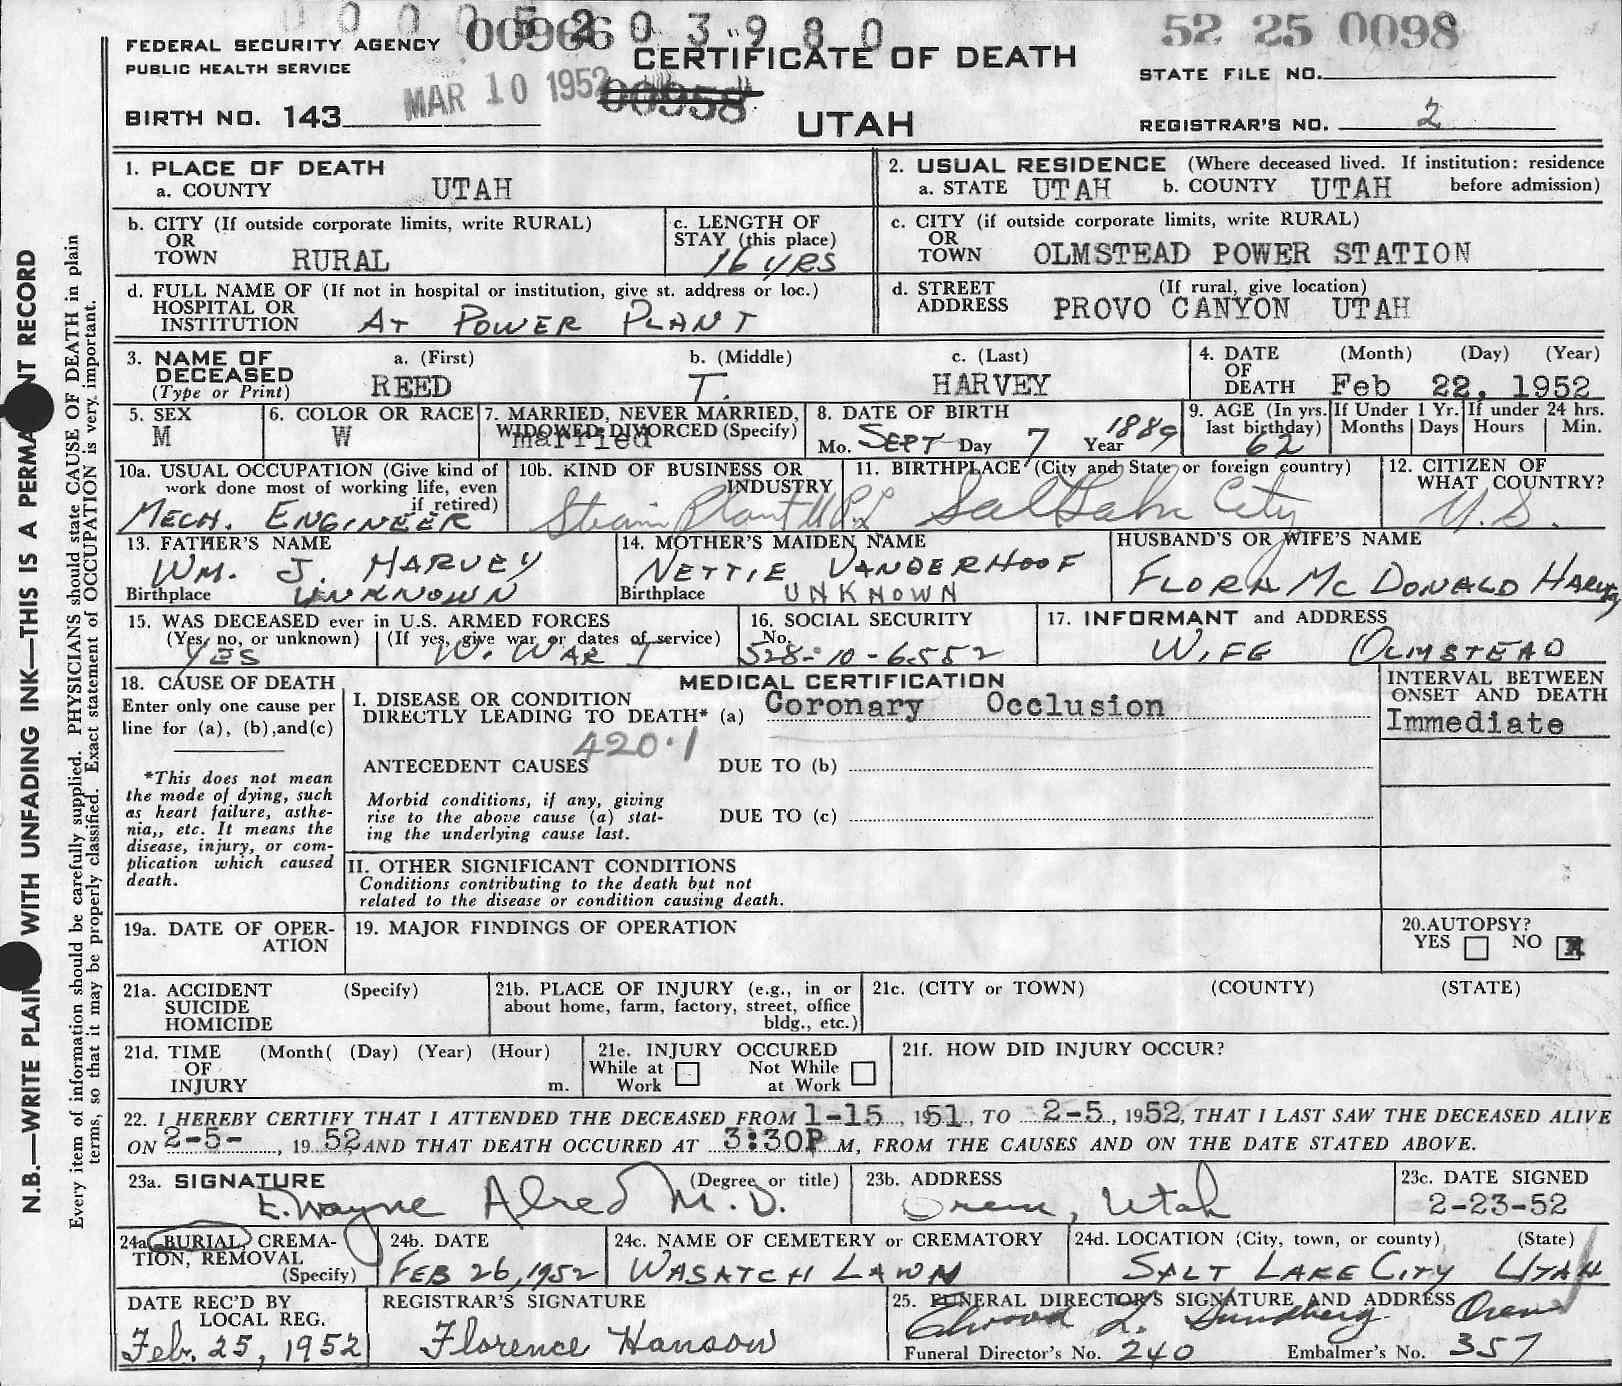 0 0 0 5 2 0 3 9 8 0
00966
52 25 0098
FEDERAL SECURITY AGENCY
PUBLIC HEALTH SERVICE
CERTIFICATE OF DEATH
STATE FILE NO.
MAR 10 1952
00958
BIRTH NO. 143
UTAH
REGISTRAR'S NO. 2
1. PLACE OF DEATH
a. COUNTY UTAH
2. USUAL RESIDENCE (Where deceased lived. If institution: residence
a. STATE UTAH b. COUNTY UTAH before admission)
b. CITY (If outside corporate limits, write RURAL)
OR
TOWN RURAL
c. LENGTH OF
STAY (this place)
16 YRS
c. CITY (if outside corporate limits, write RURAL)
OR
TOWN OLMSTEAD POWER STATION
d. FULL NAME OF (If not in hospital or institution, give st. address or loc.)
HOSPITAL OR
INSTITUTION AT POWER PLANT
d. STREET (If rural, give location)
ADDRESS PROVO CANYON UTAH
3. NAME OF
DECEASED
(Type or Print)
a. (First) b. (Middle) c. (Last)
REED T. HARVEY
4. DATE (Month) (Day) (Year)
OF
DEATH Feb 22, 1952
5. SEX
M
6. COLOR OR RACE
W
7. MARRIED, NEVER MARRIED,
WIDOWED, DIVORCED (Specify)
married
8. DATE OF BIRTH
Mo. SEPT Day 7 Year 1889
9. AGE (In yrs.
last birthday)
62
If Under 1 Yr.
Months Days
If under 24 hrs.
Hours Min.
10a. USUAL OCCUPATION (Give kind of
work done most of working life, even
if retired)
MECH. ENGINEER
10b. KIND OF BUSINESS OR
INDUSTRY
Steam Plant UP&L
11. BIRTHPLACE (City and State or foreign country)
Salt Lake City
12. CITIZEN OF
WHAT COUNTRY?
U.S.
13. FATHER'S NAME
WM. J. HARVEY
Birthplace UNKNOWN
14. MOTHER'S MAIDEN NAME
NETTIE VANDERHOOF
Birthplace UNKNOWN
HUSBAND'S OR WIFE'S NAME
FLORA MC DONALD HARVEY
15. WAS DECEASED ever in U.S. ARMED FORCES
(Yes, no, or unknown) (If yes, give war or dates of service)
YES W. WAR I
16. SOCIAL SECURITY
No.
528-10-6552
17. INFORMANT and ADDRESS
WIFE OLMSTEAD
18. CAUSE OF DEATH
Enter only one cause per
line for (a), (b), and (c)
*This does not mean
the mode of dying, such
as heart failure, asthe-
nia,, etc. It means the
disease, injury, or com-
plication which caused
death.
MEDICAL CERTIFICATION
I. DISEASE OR CONDITION
DIRECTLY LEADING TO DEATH* (a) Coronary Occlusion
420.1
ANTECEDENT CAUSES DUE TO (b)
Morbid conditions, if any, giving
rise to the above cause (a) stat-
ing the underlying cause last.
DUE TO (c)
INTERVAL BETWEEN
ONSET AND DEATH
Immediate
II. OTHER SIGNIFICANT CONDITIONS
Conditions contributing to the death but not
related to the disease or condition causing death.
19a. DATE OF OPER-
ATION
19. MAJOR FINDINGS OF OPERATION
20. AUTOPSY?
YES NO X
21a. ACCIDENT (Specify)
SUICIDE
HOMICIDE
21b. PLACE OF INJURY (e.g., in or
about home, farm, factory, street, office
bldg., etc.)
21c. (CITY or TOWN) (COUNTY) (STATE)
21d. TIME (Month( (Day) (Year) (Hour)
OF
INJURY m.
21e. INJURY OCCURED
While at Not While
Work at Work
21f. HOW DID INJURY OCCUR?
22. I HEREBY CERTIFY THAT I ATTENDED THE DECEASED FROM 1-15, 1951, TO 2-5, 1952, THAT I LAST SAW THE DECEASED ALIVE
ON 2-5-, 1952 AND THAT DEATH OCCURED AT 3:30P M, FROM THE CAUSES AND ON THE DATE STATED ABOVE.
23a. SIGNATURE (Degree or title)
E. Wayne Alred M.D.
23b. ADDRESS
Orem, Utah
23c. DATE SIGNED
2-23-52
24a. BURIAL, CREMA-
TION, REMOVAL
(Specify)
24b. DATE
FEB 26, 1952
24c. NAME OF CEMETERY or CREMATORY
WASATCH LAWN
24d. LOCATION (City, town, or county) (State)
SALT LAKE CITY UTAH
DATE REC'D BY
LOCAL REG.
Feb. 25, 1952
REGISTRAR'S SIGNATURE
Florence Hanson
25. FUNERAL DIRECTOR'S SIGNATURE AND ADDRESS
Elwood L. Sundberg Orem
Funeral Director's No. 240 Embalmer's No. 357
N.B.—WRITE PLAIN WITH UNFADING INK—THIS IS A PERMANENT RECORD
Every item of information should be carefully supplied. PHYSICIANS should state CAUSE OF DEATH in plain
terms, so that it may be properly classified. Exact statement of OCCUPATION is very important.